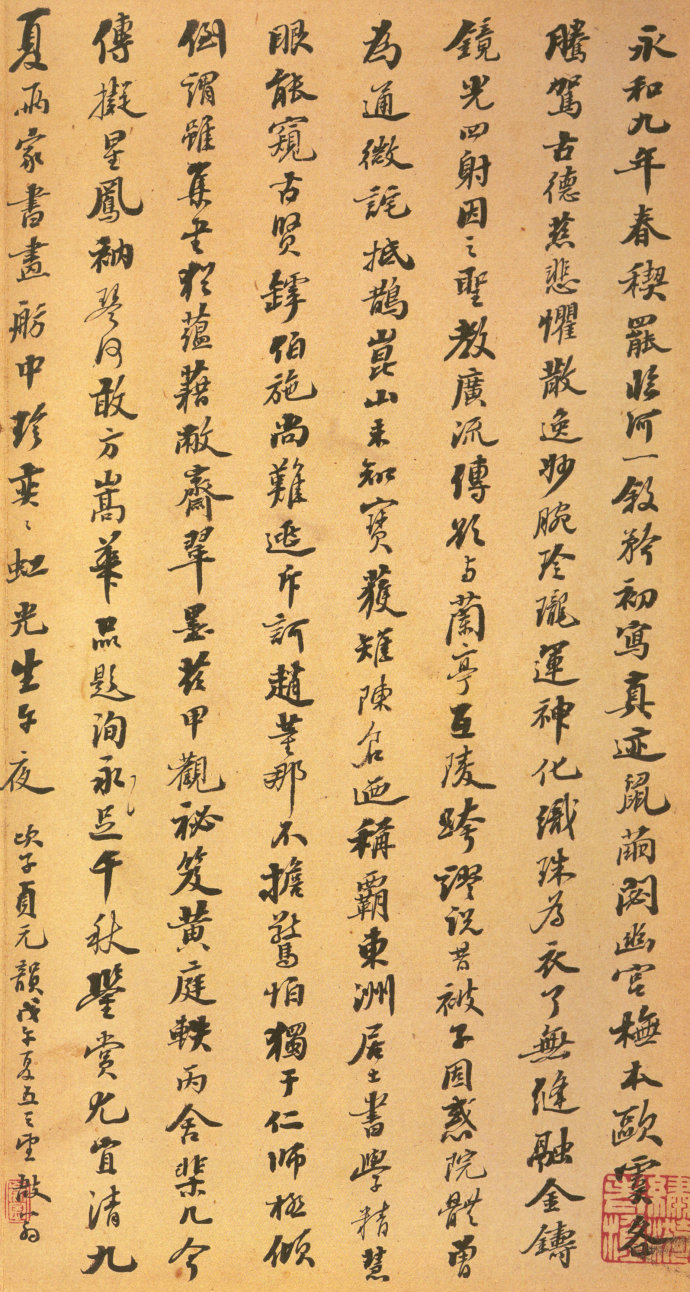 永和九年春稧罷臨河一敘矜初寫真迹鼠繭閟幽宮橅本歐虞各
騰駕古德慈悲懼散逸妙腕玲瓏運神化織珠為衣了無縫融金鑄
鏡光四射因之聖教廣流傳欲与蘭亭互陵跨謬說昔被子固惑院體曾
為通微詫抵鵲崑山未知寶獲雉陳倉迺稱霸東洲居士書學精慧
眼能窺古賢罅伯施尚難逃斥訶趙董那不擔驚怕獨于仁師極傾
倒謂雖集書猶蘊藉敝齋翠墨茲甲觀祕笈黃庭軼丙舍棐几今
傳擬星鳳衲琴何敢方嵩華品題洵永足千秋鑒賞尤宜清九
夏兩家書畫舫中珍奕〻虹光生午夜 次子貢元韻戊午夏五之望